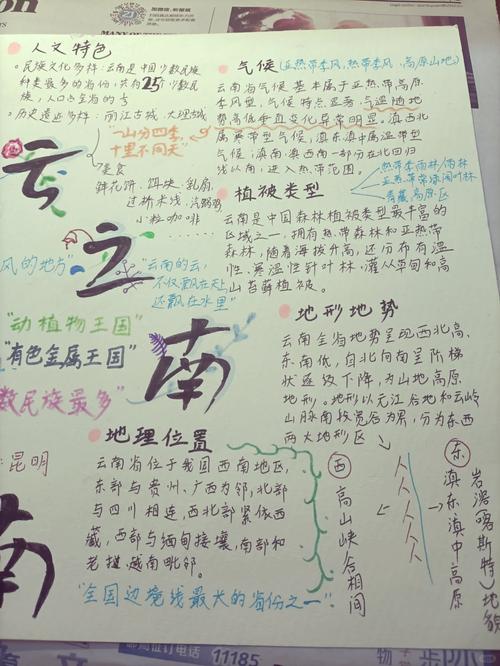 人文特色
民族文化多样:云南是中国少数民族
种类最多的省份,共有25个少数民
族,人口占全省的
历史遗迹多样:丽江古城、大理城
"一山分四季,
十里不同天"
美食
鲜花饼、饵块、乳扇
过桥米线、汽锅鸡
小粒咖啡
云
之
南
风的地方"
"云南的云,
不仅飘在天上
还飘在水里"
"动植物王国"
"有色金属王国"
数民族最多"
气候(亚热带季风,热带季风,高原山地)
云南省气候基本属于亚热带高原
季风型,气候特点显著,气温随地
势高低垂直变化异常明显。滇西北
属寒带型气候,滇东滇中属温带型
气候,滇南滇西南一部分在北回归
线以南,进入热带范围。
植被类型
热带季雨林/雨林
亚热带常绿阔叶林
青藏高原区
云南是中国森林植被类型最丰富的
区域之一,拥有热带森林和亚热带
森林,随着海拔升高,还分布有温
性、寒温性针叶林,灌丛草甸和高
山苔藓植被。
地形地势
云南全省地势呈现西北高、
东南低,自北向南呈阶梯
状逐级下降,为山地高原
地形。地形以元江谷地和云岭
山脉南段宽谷为界,分为东西
两大地形区
西
高山峡谷相间
东
滇东滇中高原
岩溶(喀斯特)地貌
地理位置
云南省位于我国西南地区,
东部与贵州、广西为邻,北部
与四川相连,西北部紧依西
藏,西部与缅甸接壤,南部和
老挝、越南毗邻。
"全国边境线最长的省份之一"
:昆明
南
11185